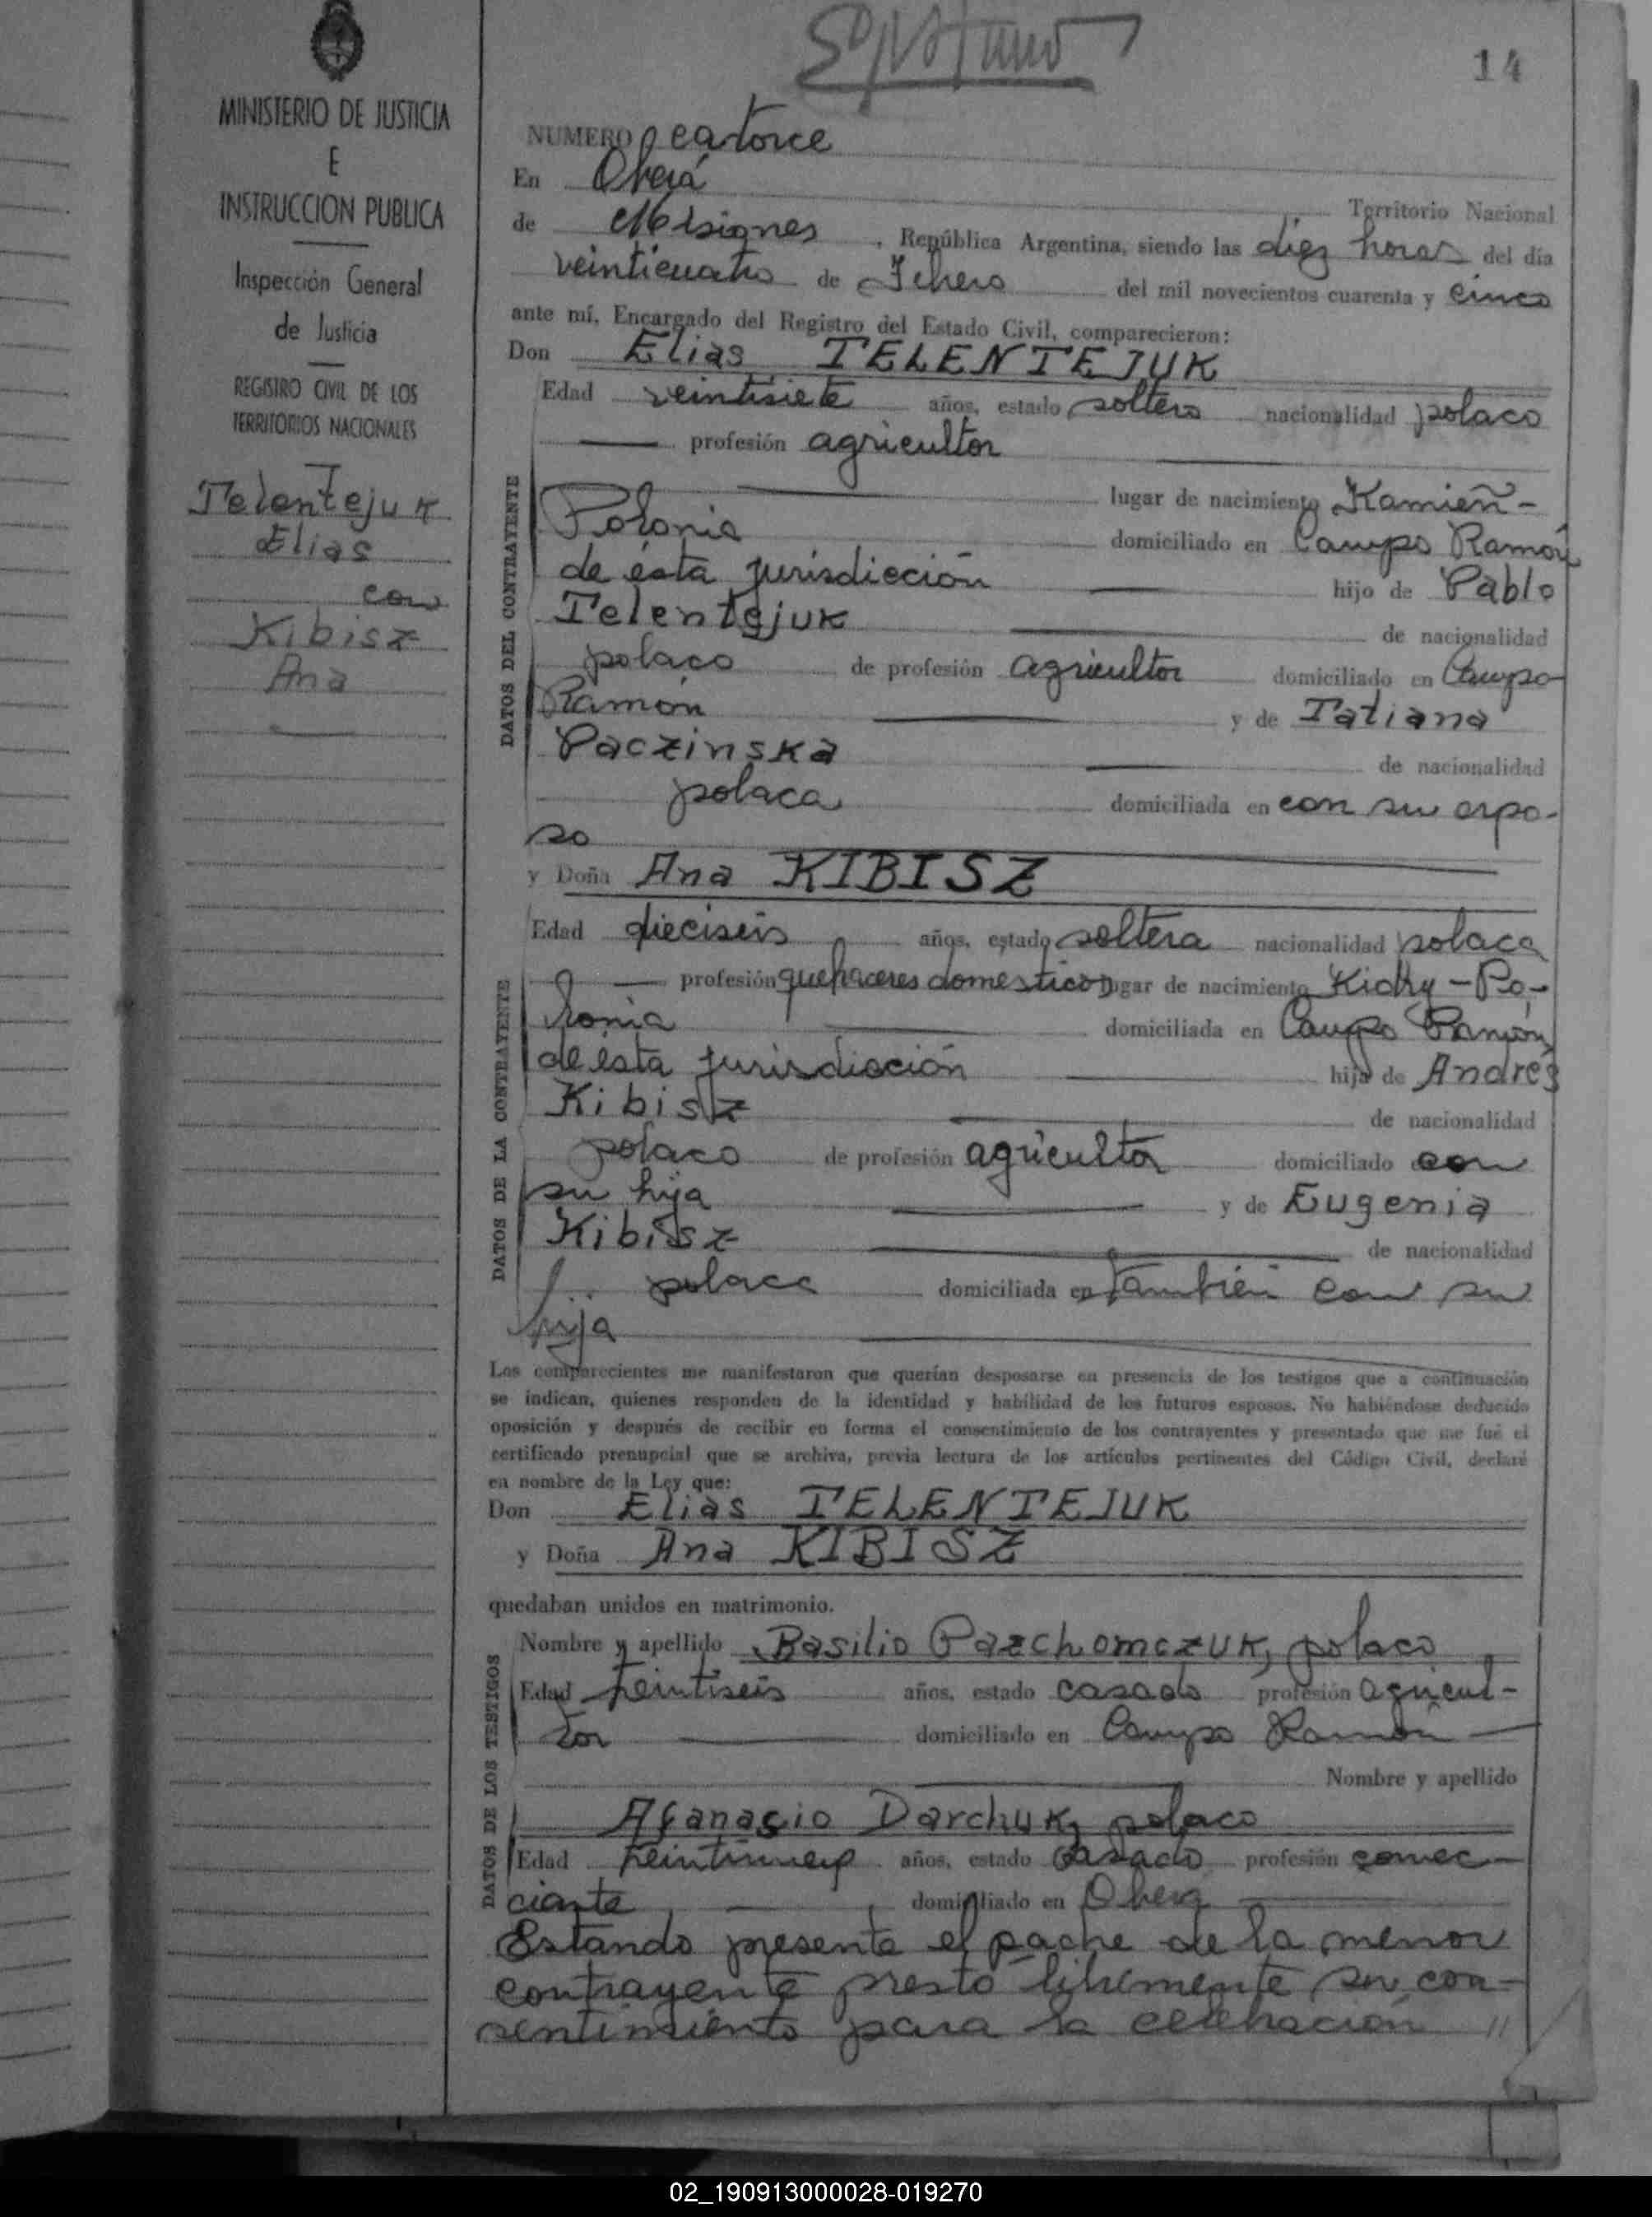 14
MINISTERIO DE JUSTICIA
E
INSTRUCCION PUBLICA
Inspección General
de Justicia
REGISTRO CIVIL DE LOS
TERRITORIOS NACIONALES
Telentejuk
Elias
con
Kibisz
Ana
NUMERO catorce
En Oberá
Territorio Nacional
de Misiones, República Argentina, siendo las diez horas del día
veinticuatro de Febrero del mil novecientos cuarenta y cinco
ante mí, Encargado del Registro del Estado Civil, comparecieron:
Don Elias TELENTEJUK
Edad veintisiete años, estado soltero nacionalidad polaco
profesión agricultor
DATOS DEL CONTRAYENTE
lugar de nacimiento Kamień-
Polonia domiciliado en Campo Ramón
de ésta jurisdicción hijo de Pablo
Telentejuk de nacionalidad
polaco de profesión agricultor domiciliado en Campo
Ramón y de Tatiana
Paczinska de nacionalidad
polaca domiciliada en con su espo-
so
y Doña Ana KIBISZ
Edad dieciseis años, estado soltera nacionalidad polaca
profesión quehaceres domesticos lugar de nacimiento Kichy-Po-
lonia domiciliada en Campo Ramón
de ésta jurisdicción hija de Andrés
DATOS DE LA CONTRAYENTE
Kibisz de nacionalidad
polaco de profesión agricultor domiciliado con
su hija y de Eugenia
Kibisz de nacionalidad
polaca domiciliada en también con su
hija
Los comparecientes me manifestaron que querían desposarse en presencia de los testigos que a continuación
se indican, quienes responden de la identidad y habilidad de los futuros esposos. No habiéndose deducido
oposición y después de recibir en forma el consentimiento de los contrayentes y presentado que me fué el
certificado prenupcial que se archiva, previa lectura de los artículos pertinentes del Código Civil, declaré
en nombre de la Ley que:
Don Elias TELENTEJUK
y Doña Ana KIBISZ
quedaban unidos en matrimonio.
DATOS DE LOS TESTIGOS
Nombre y apellido Basilio Pazchomczuk, polaco
Edad veintiseis años, estado casado profesión agricul-
tor domiciliado en Campo Ramón
Nombre y apellido
Afanasio Darchuk, polaco
Edad años, estado casado profesión comer-
ciante domiciliado en Oberá
Estando presente el padre de la menor
contrayente prestó libremente su con-
sentimiento para la celebración //
02_190913000028-019270